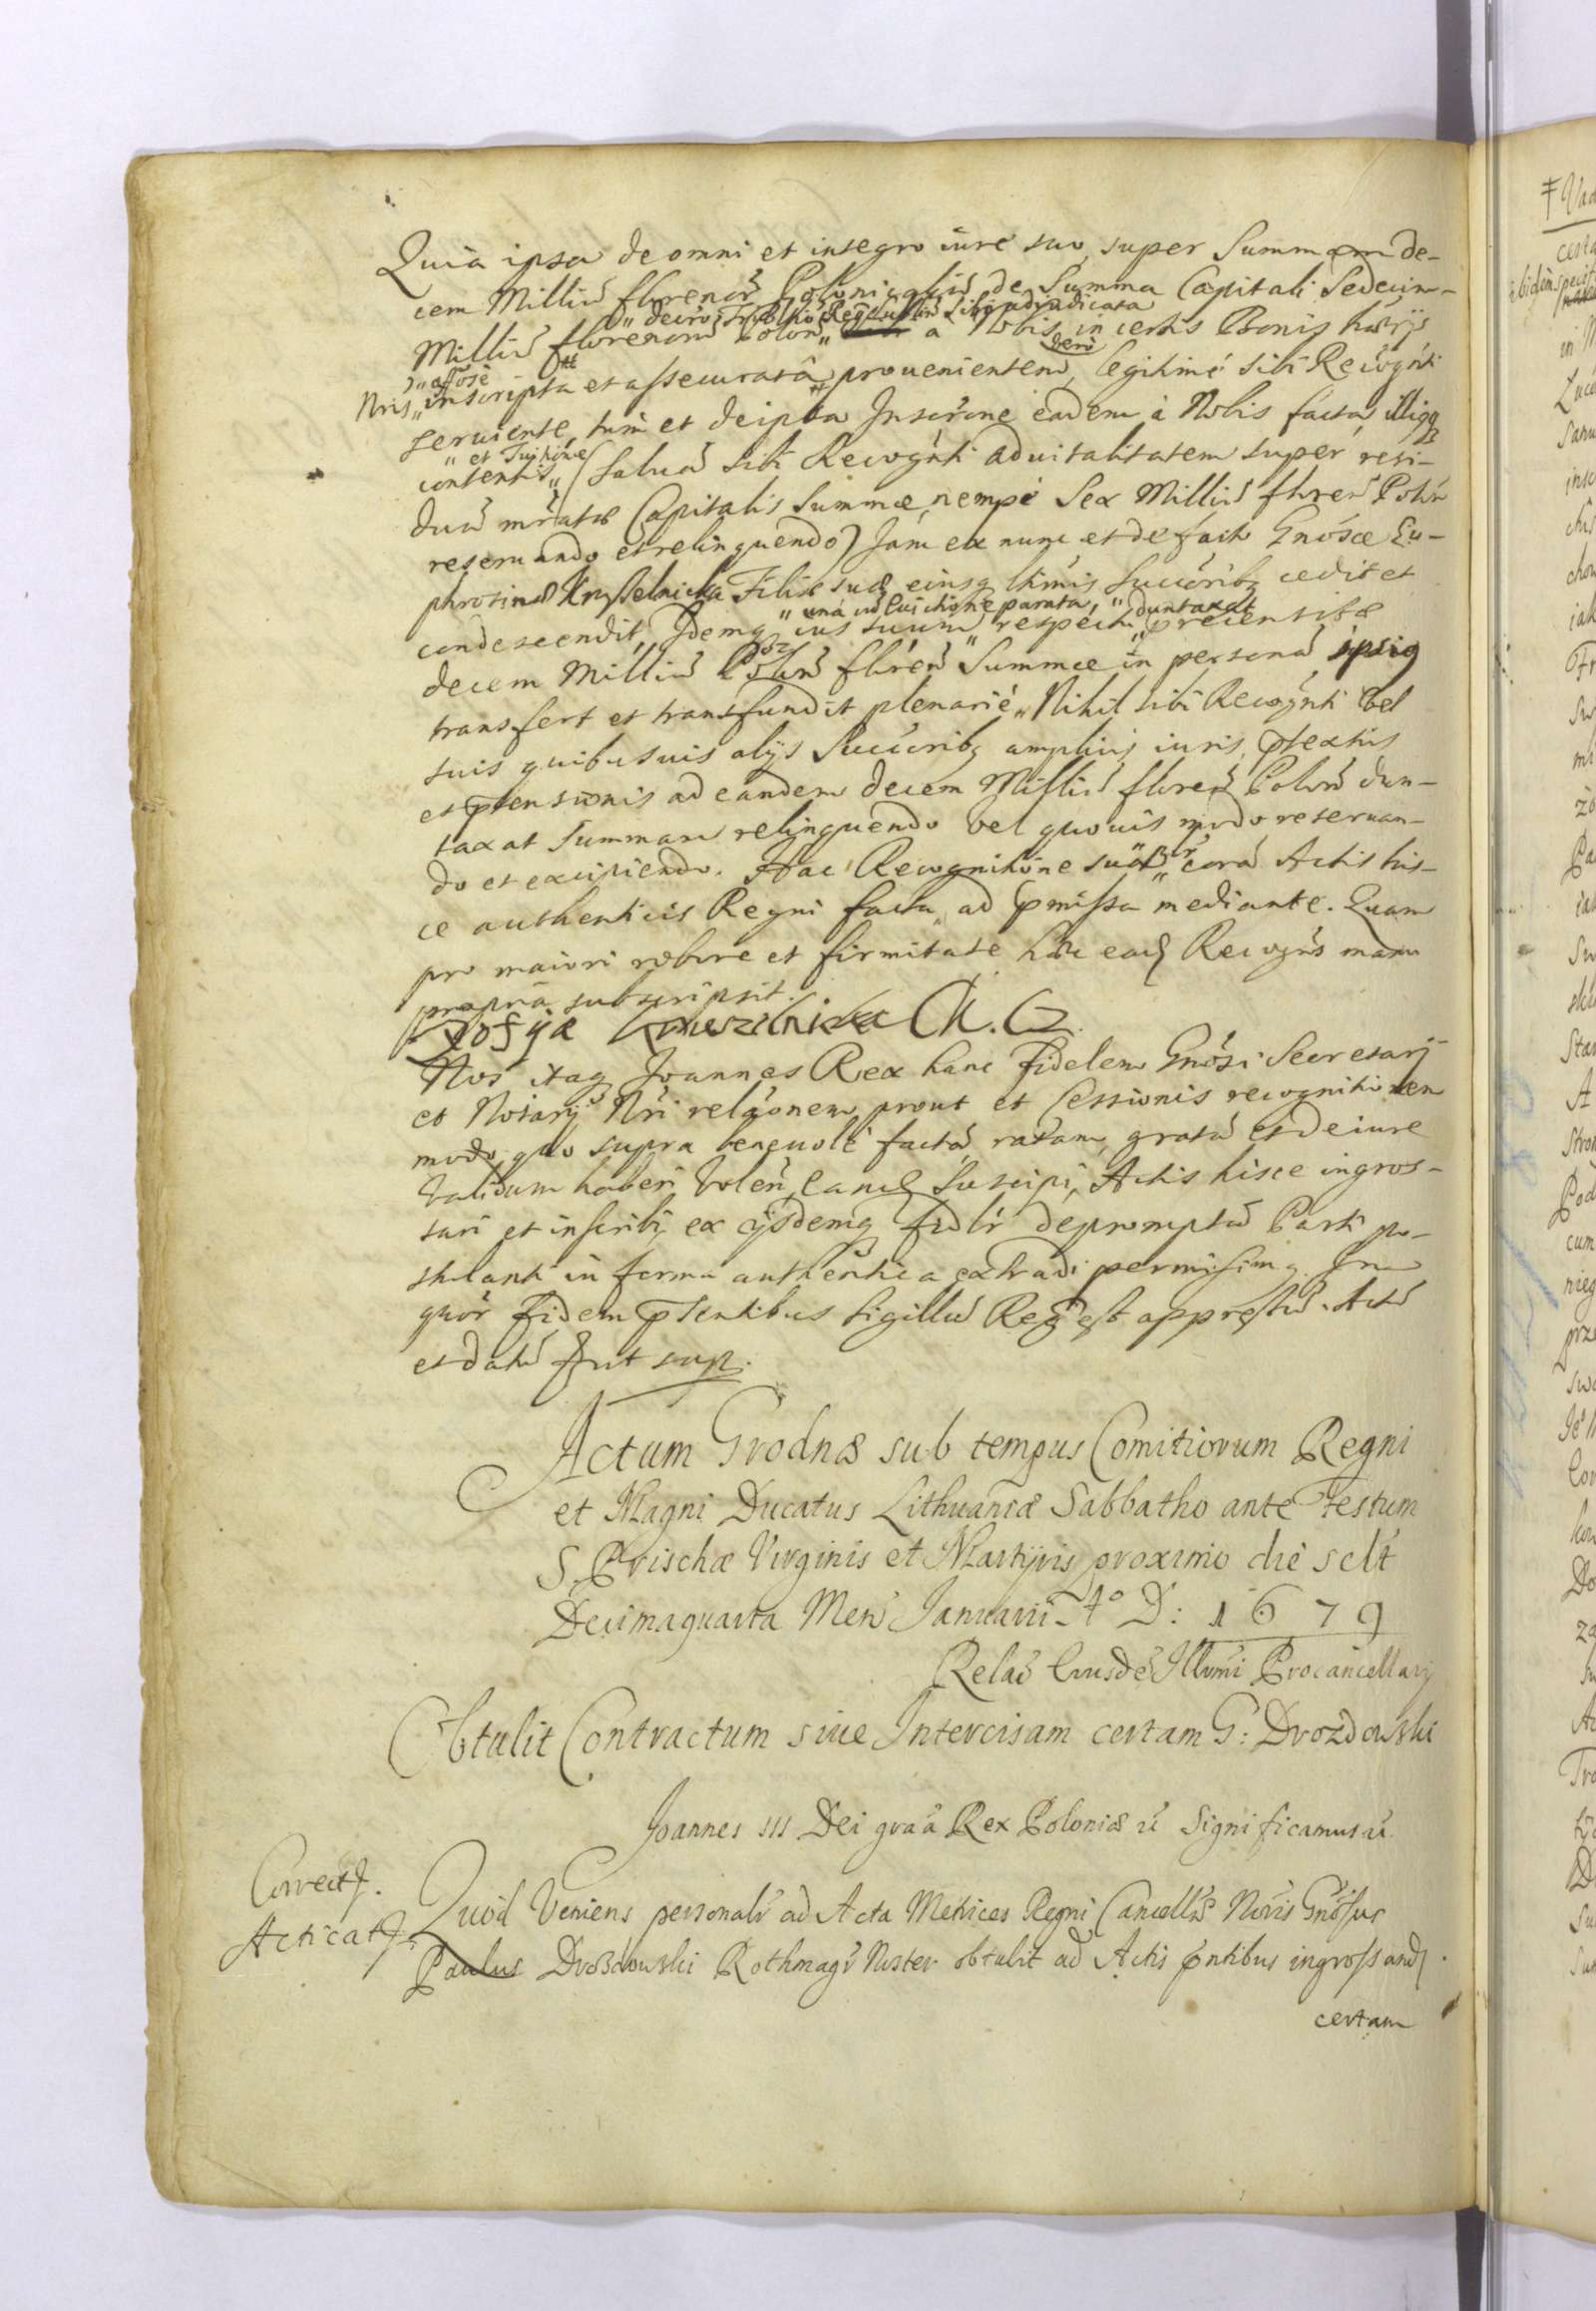 Quia ipsa de omni et integro iure suo, super Summam de-
cem Milliū florenor̄ Polonicaliū de Summa Capitali Sedecim-
" decro Triblis Regni Lublin̄ Sibi adiudicata
Milliū florenorū Polon̄ " a Nobis in certis Bonis hær̄ijs
vero
Nris " inscripta et assecuratâ prouenientem, legitimé sibi Recogn̄ti
seruiente, tum et de ipsa Inscr̄one eadem à Nobis facta, illiqꝫ
" et Tuitione
contentis " (salua sibi Recogn̄ti aduitalitatem super resi-
duū mr̄atæ Capitalis Summæ, nempè Sex Milliū floren̄ Polon̄
reseruando et relinquendo) Jam ex nunc et de facto Gn̄osæ Eu-
phrosinæ Krysztelnicka Filiæ suæ, eiusqꝫ ltimis Succ̄oribꝫ cedit et
" unà cū Euictione parata, " duntaxat
condescendit, Idemqꝫ ius suum " respectu præcensitæ
decem Milliū Polon̄ floren̄ " Summæ in personā ipsiꝰ
transfert et transfundit plenarié " Nihil sibi Recogn̄ti vel
suis quibusuis alijs Succ̄oribꝫ ampliùs iuris, p̄textus
et p̄tensionis ad eandem decem Milliū floren̄ Polon̄ dun-
taxat Summam relinquendo vel quouis modo reseruan-
do et excipiendo. Hac Recognitione suâ " corā Actis his-
ce authenticis Regni facta " ad p̄missa mediante. Quam
pro maiori robore et firmitate hæc eadꝫ Recogn̄s manu
propria subscripsit.
Zofyia
Nos itaqꝫ Joannes Rex hanc fidelem Gn̄osi Secretarij
et Notarij Nr̄i relāonem, prout et Cessionis recognitionem
modo quo supra beneuolè factā, ratam, gratā et de iure
validam haberi volen̄, eandꝫ suscipi, Actis hisce ingros-
sari et inscribi, ex ijsdemqꝫ fidlr̄ depromptū Parti po-
stulanti in forma authentica extradi permisimꝰ. In
quor̄ fidem p̄sentibus Sigillū Regni est appressū. Actū
et datū fuit sup.
Actum Grodnæ sub tempus Comitiorum Regni
et Magni Ducatus Lithuaniæ Sabbatho ante Festum
S. Prischæ Virginis et Martyris proximo die sclt̄
Decimaquarta Men̄ Januarii A° D: 1679
Relāo Eiusdē Illmi Procancellarij
Obtulit Contractum siue Intercisam certam G: Drozdowski
Joannes III Dei graā Rex Poloniæ ꝛc̄ Significamus ꝛc̄
Correctꝫ.
Acticatꝫ.
Quòd Veniens personalr̄ ad Acta Metrices Regni Cancellr̄æ Nr̄is Gn̄osus
Paulus Drozdowski Rothmagr̄ Noster obtulit ad Actis p̄ntibus ingrossandꝫ
certam